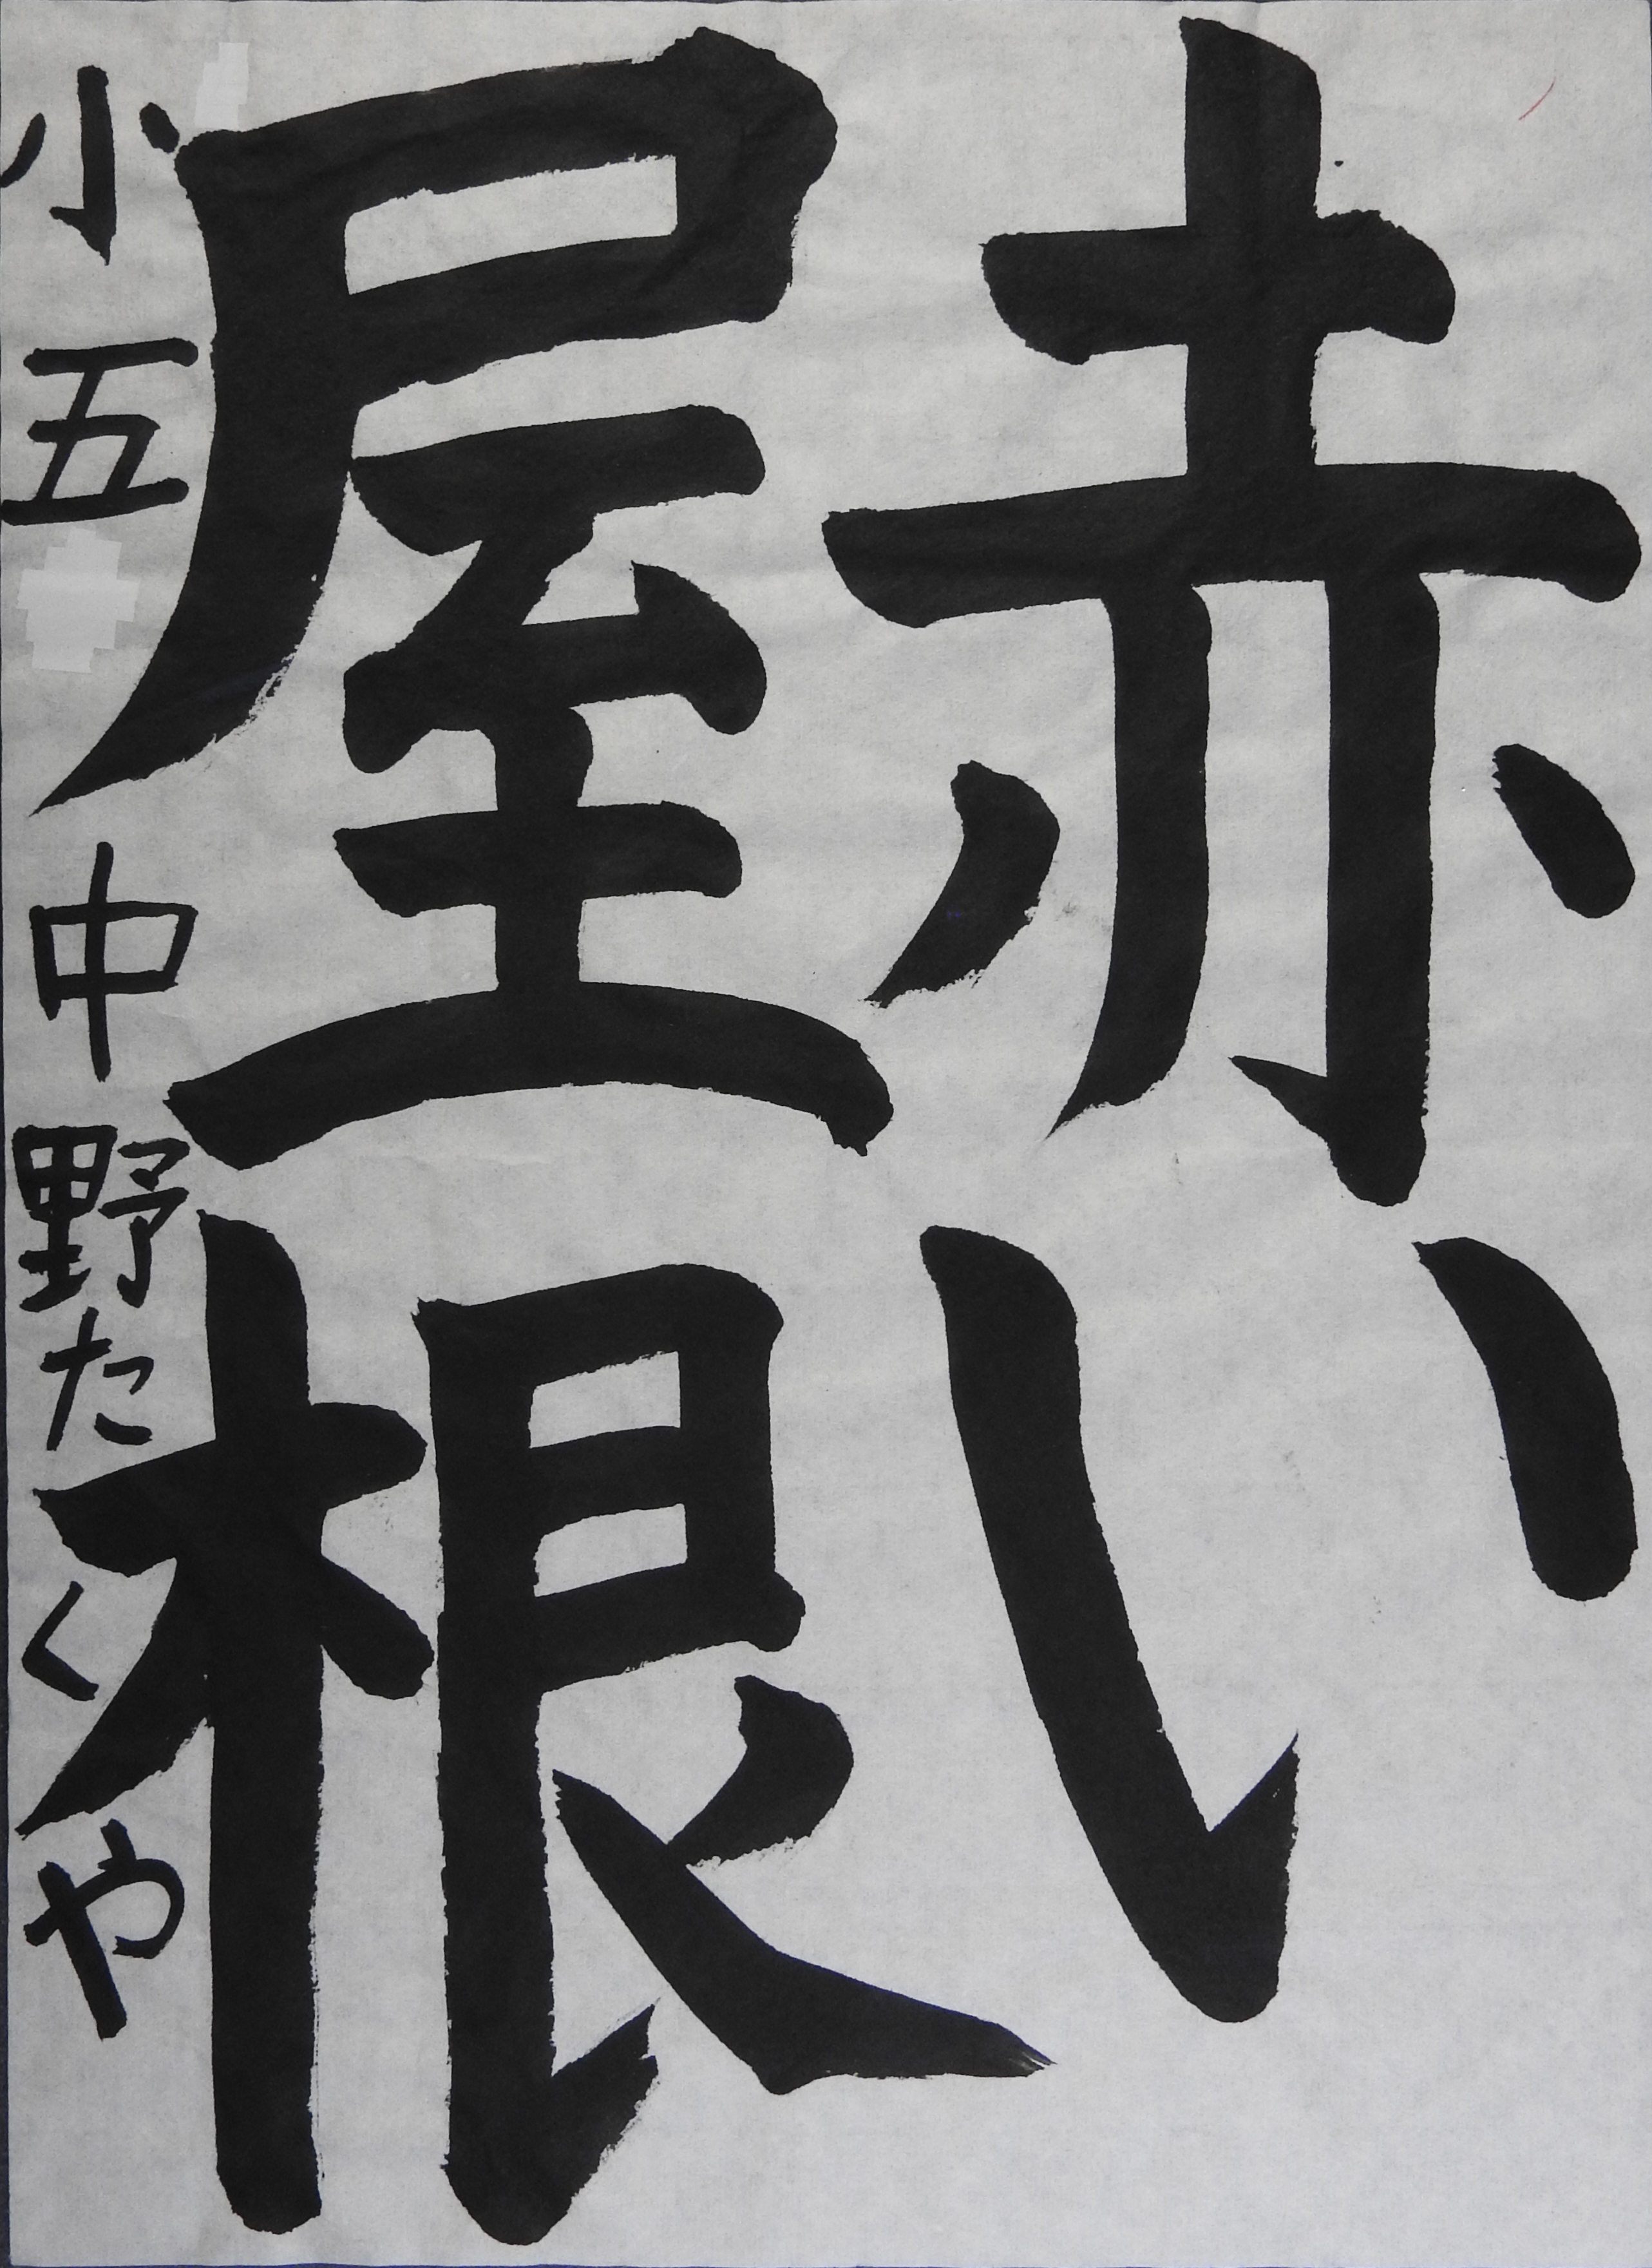 赤い
屋根
小五 中野たくや